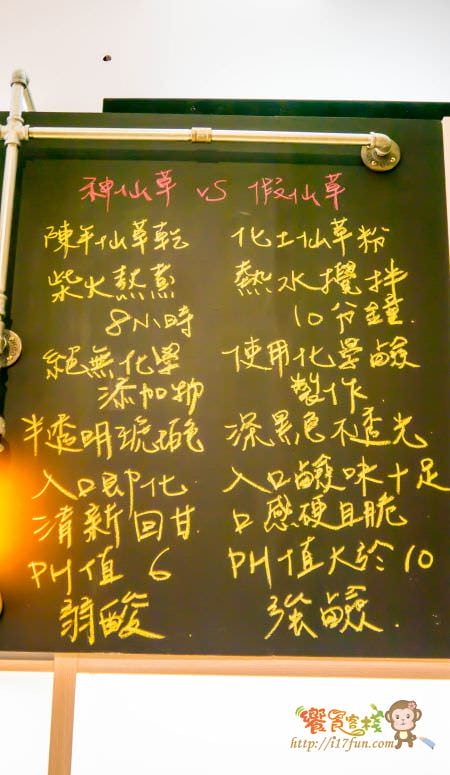 神仙草 VS 假仙草
陳年仙草乾
柴火熬煮
8小時
絕無化學
添加物
半透明琥珀色
入口即化
清新回甘
PH值 6
弱酸
化工仙草粉
熱水攪拌
10分鐘
使用化學鹼
製作
深黑色不透光
入口鹼味十足
口感硬且脆
PH值大於10
強鹼
饗食客棧
http://i17fun.com/